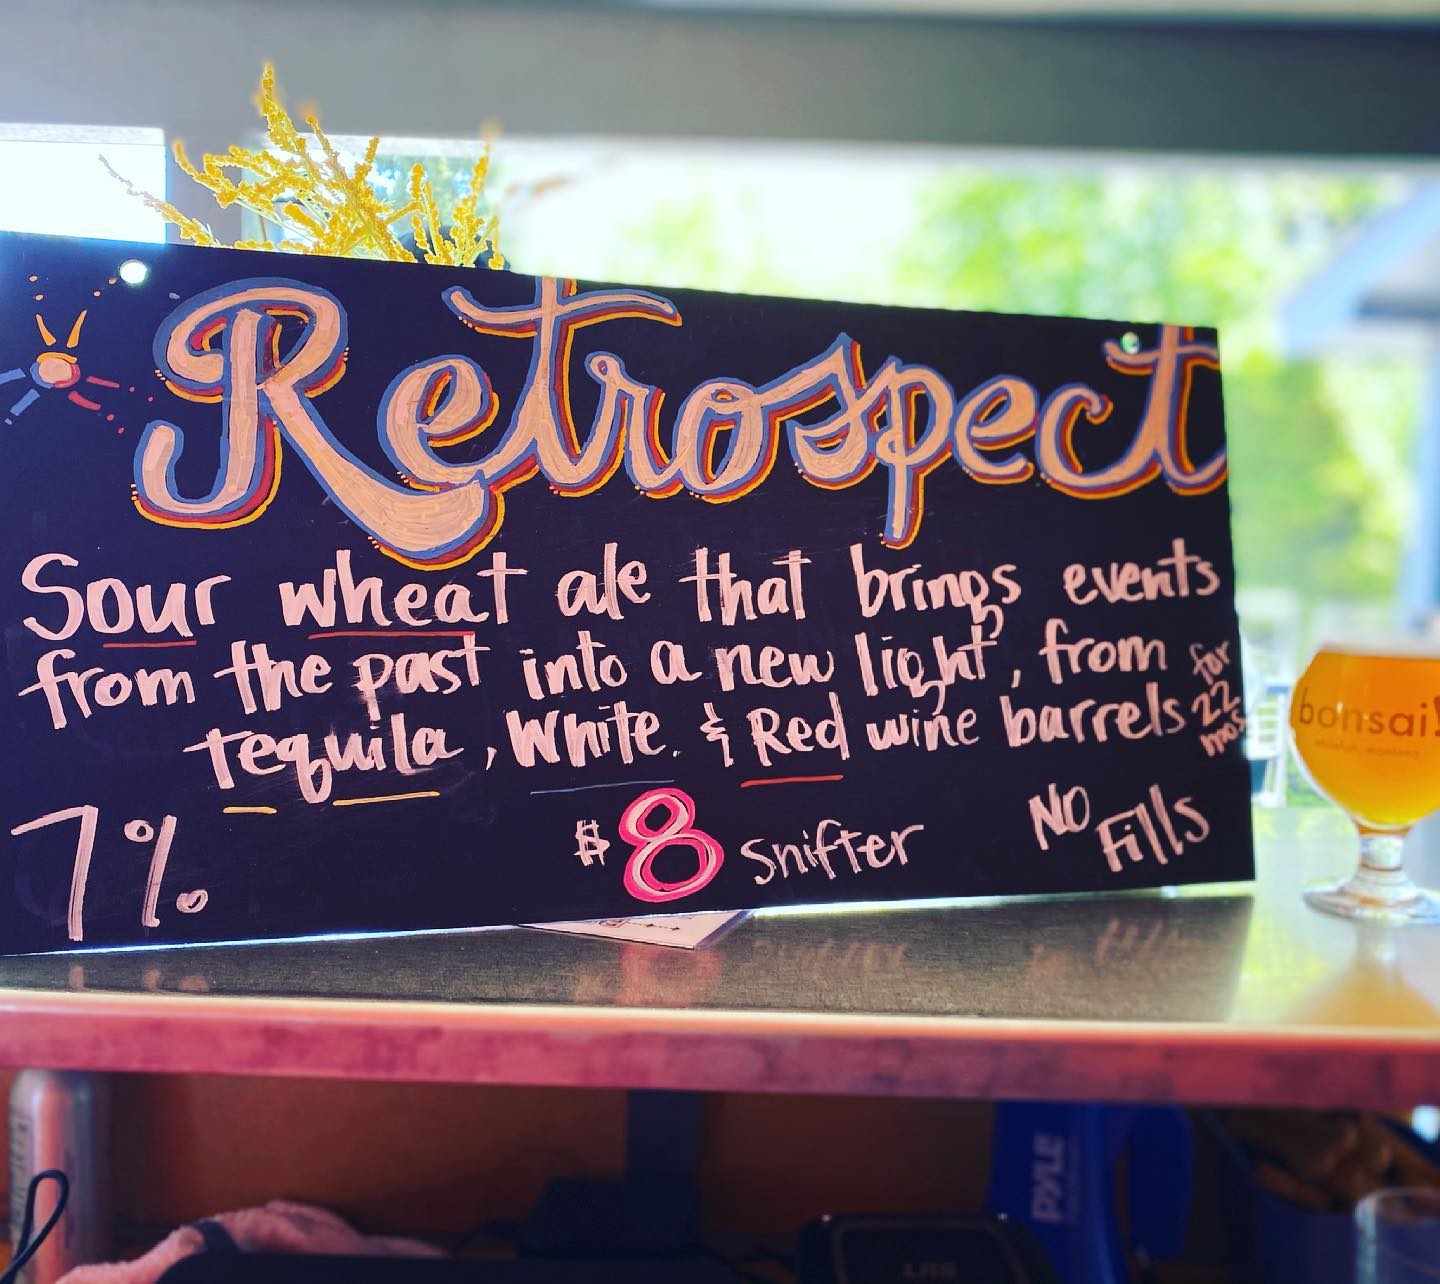 Retrospect
Sour wheat ale that brings events
from the past into a new light, from
tequila, White. & Red wine barrels
for
22
mos.
7%
$8 Snifter
NO
Fills
bonsai!
PYLE